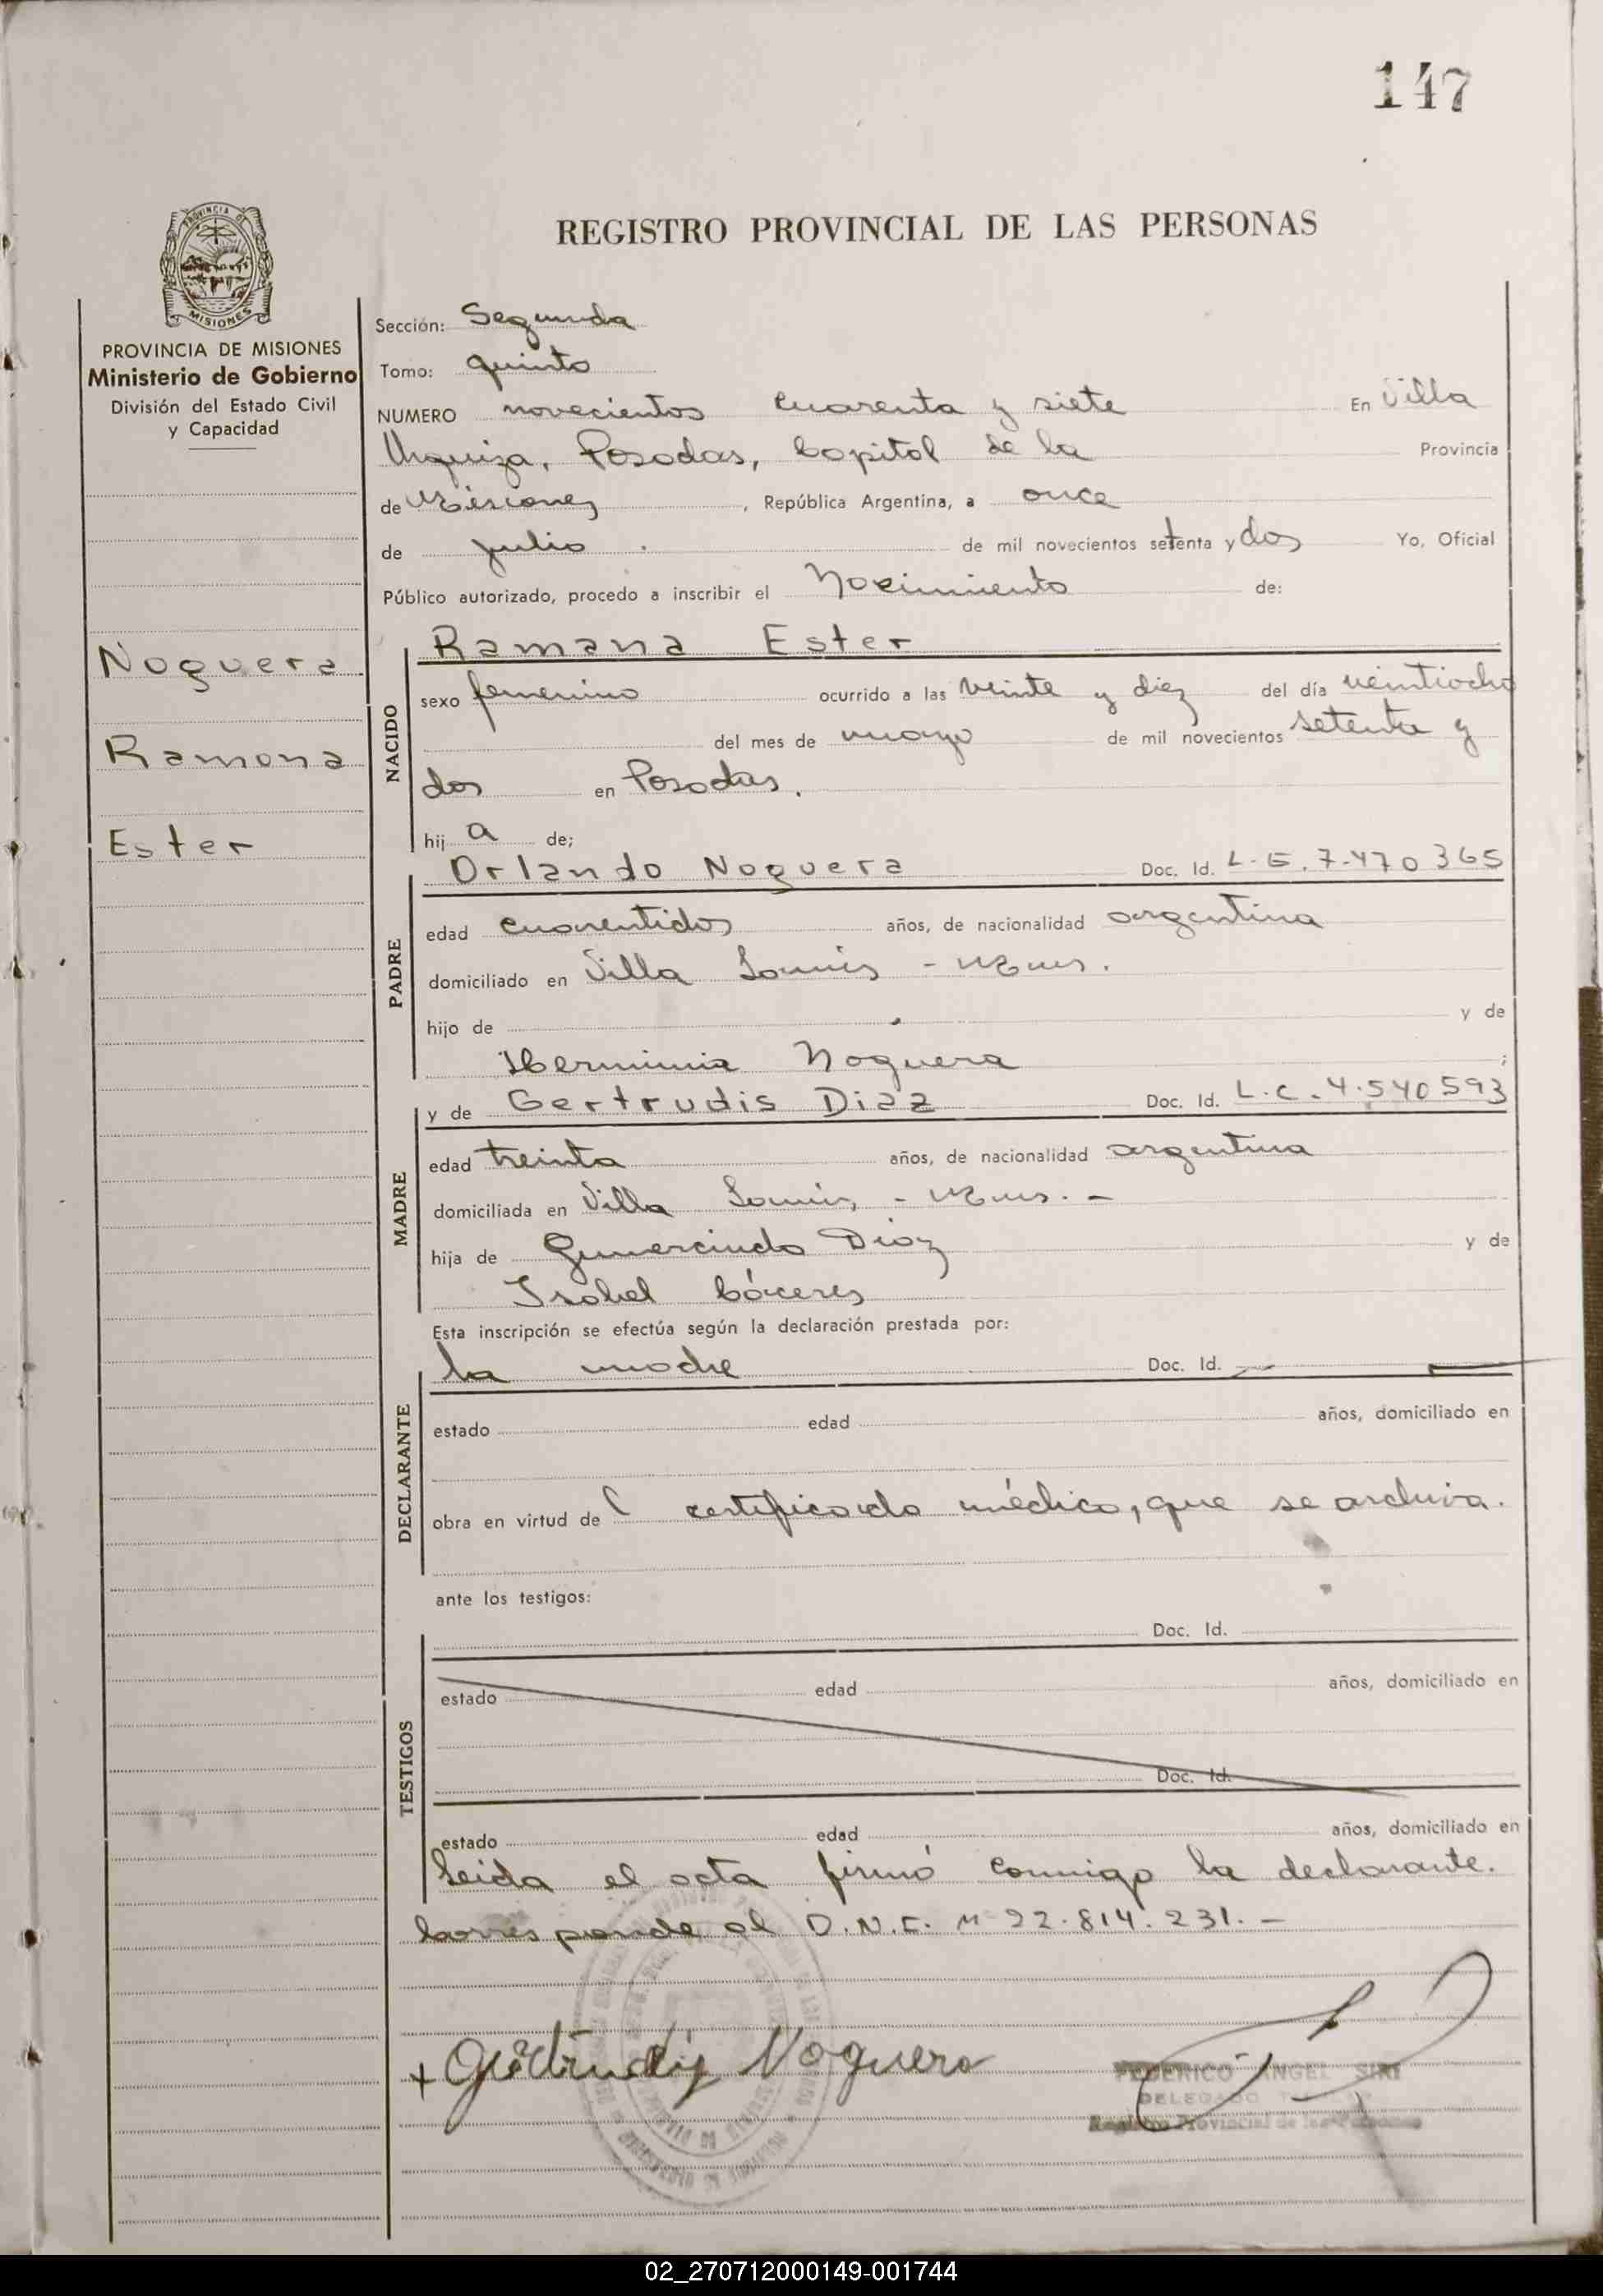 147
PROVINCIA DE
MISIONES
PROVINCIA DE MISIONES
Ministerio de Gobierno
División del Estado Civil
y Capacidad
Noguera
Ramona
Ester
REGISTRO PROVINCIAL DE LAS PERSONAS
Sección: Segunda
Tomo: quinto
NUMERO novecientos cuarenta y siete En Villa
Urquiza, Posadas, Capital de la Provincia
de Misiones, República Argentina, a once
de julio . de mil novecientos setenta y dos Yo, Oficial
Público autorizado, procedo a inscribir el Nacimiento de:
NACIDO
Ramona Ester
sexo femenino ocurrido a las veinte y diez del día veintiocho
del mes de mayo de mil novecientos setenta y
dos en Posadas.
hij a de;
PADRE
Orlando Noguera Doc. Id. L.E. 7.470 365
edad cuarentidos años, de nacionalidad argentina
domiciliado en Villa Lanús - Mnes.
hijo de y de
Herminia Noguera ;
MADRE
y de Gertrudis Diaz Doc. Id. L.C. 4.540593
edad treinta años, de nacionalidad argentina
domiciliada en Villa Lanús, - Mnes. -
hija de Gumercindo Díaz y de
Isabel Cáceres
Esta inscripción se efectúa según la declaración prestada por:
DECLARANTE
la madre Doc. Id. —
estado edad años, domiciliado en
obra en virtud de certificado médico, que se archiva.
ante los testigos:
TESTIGOS
Doc. Id.
estado edad años, domiciliado en
Doc. Id.
estado edad años, domiciliado en
Leída el acta firmó conmigo la declarante.
Corresponde al D.N.I. Nº 22.814.231. -
+ Gertrudis Noguera
FEDERICO ANGEL SIRI
DELEGADO
Registro Provincial de las Personas
02_270712000149-001744